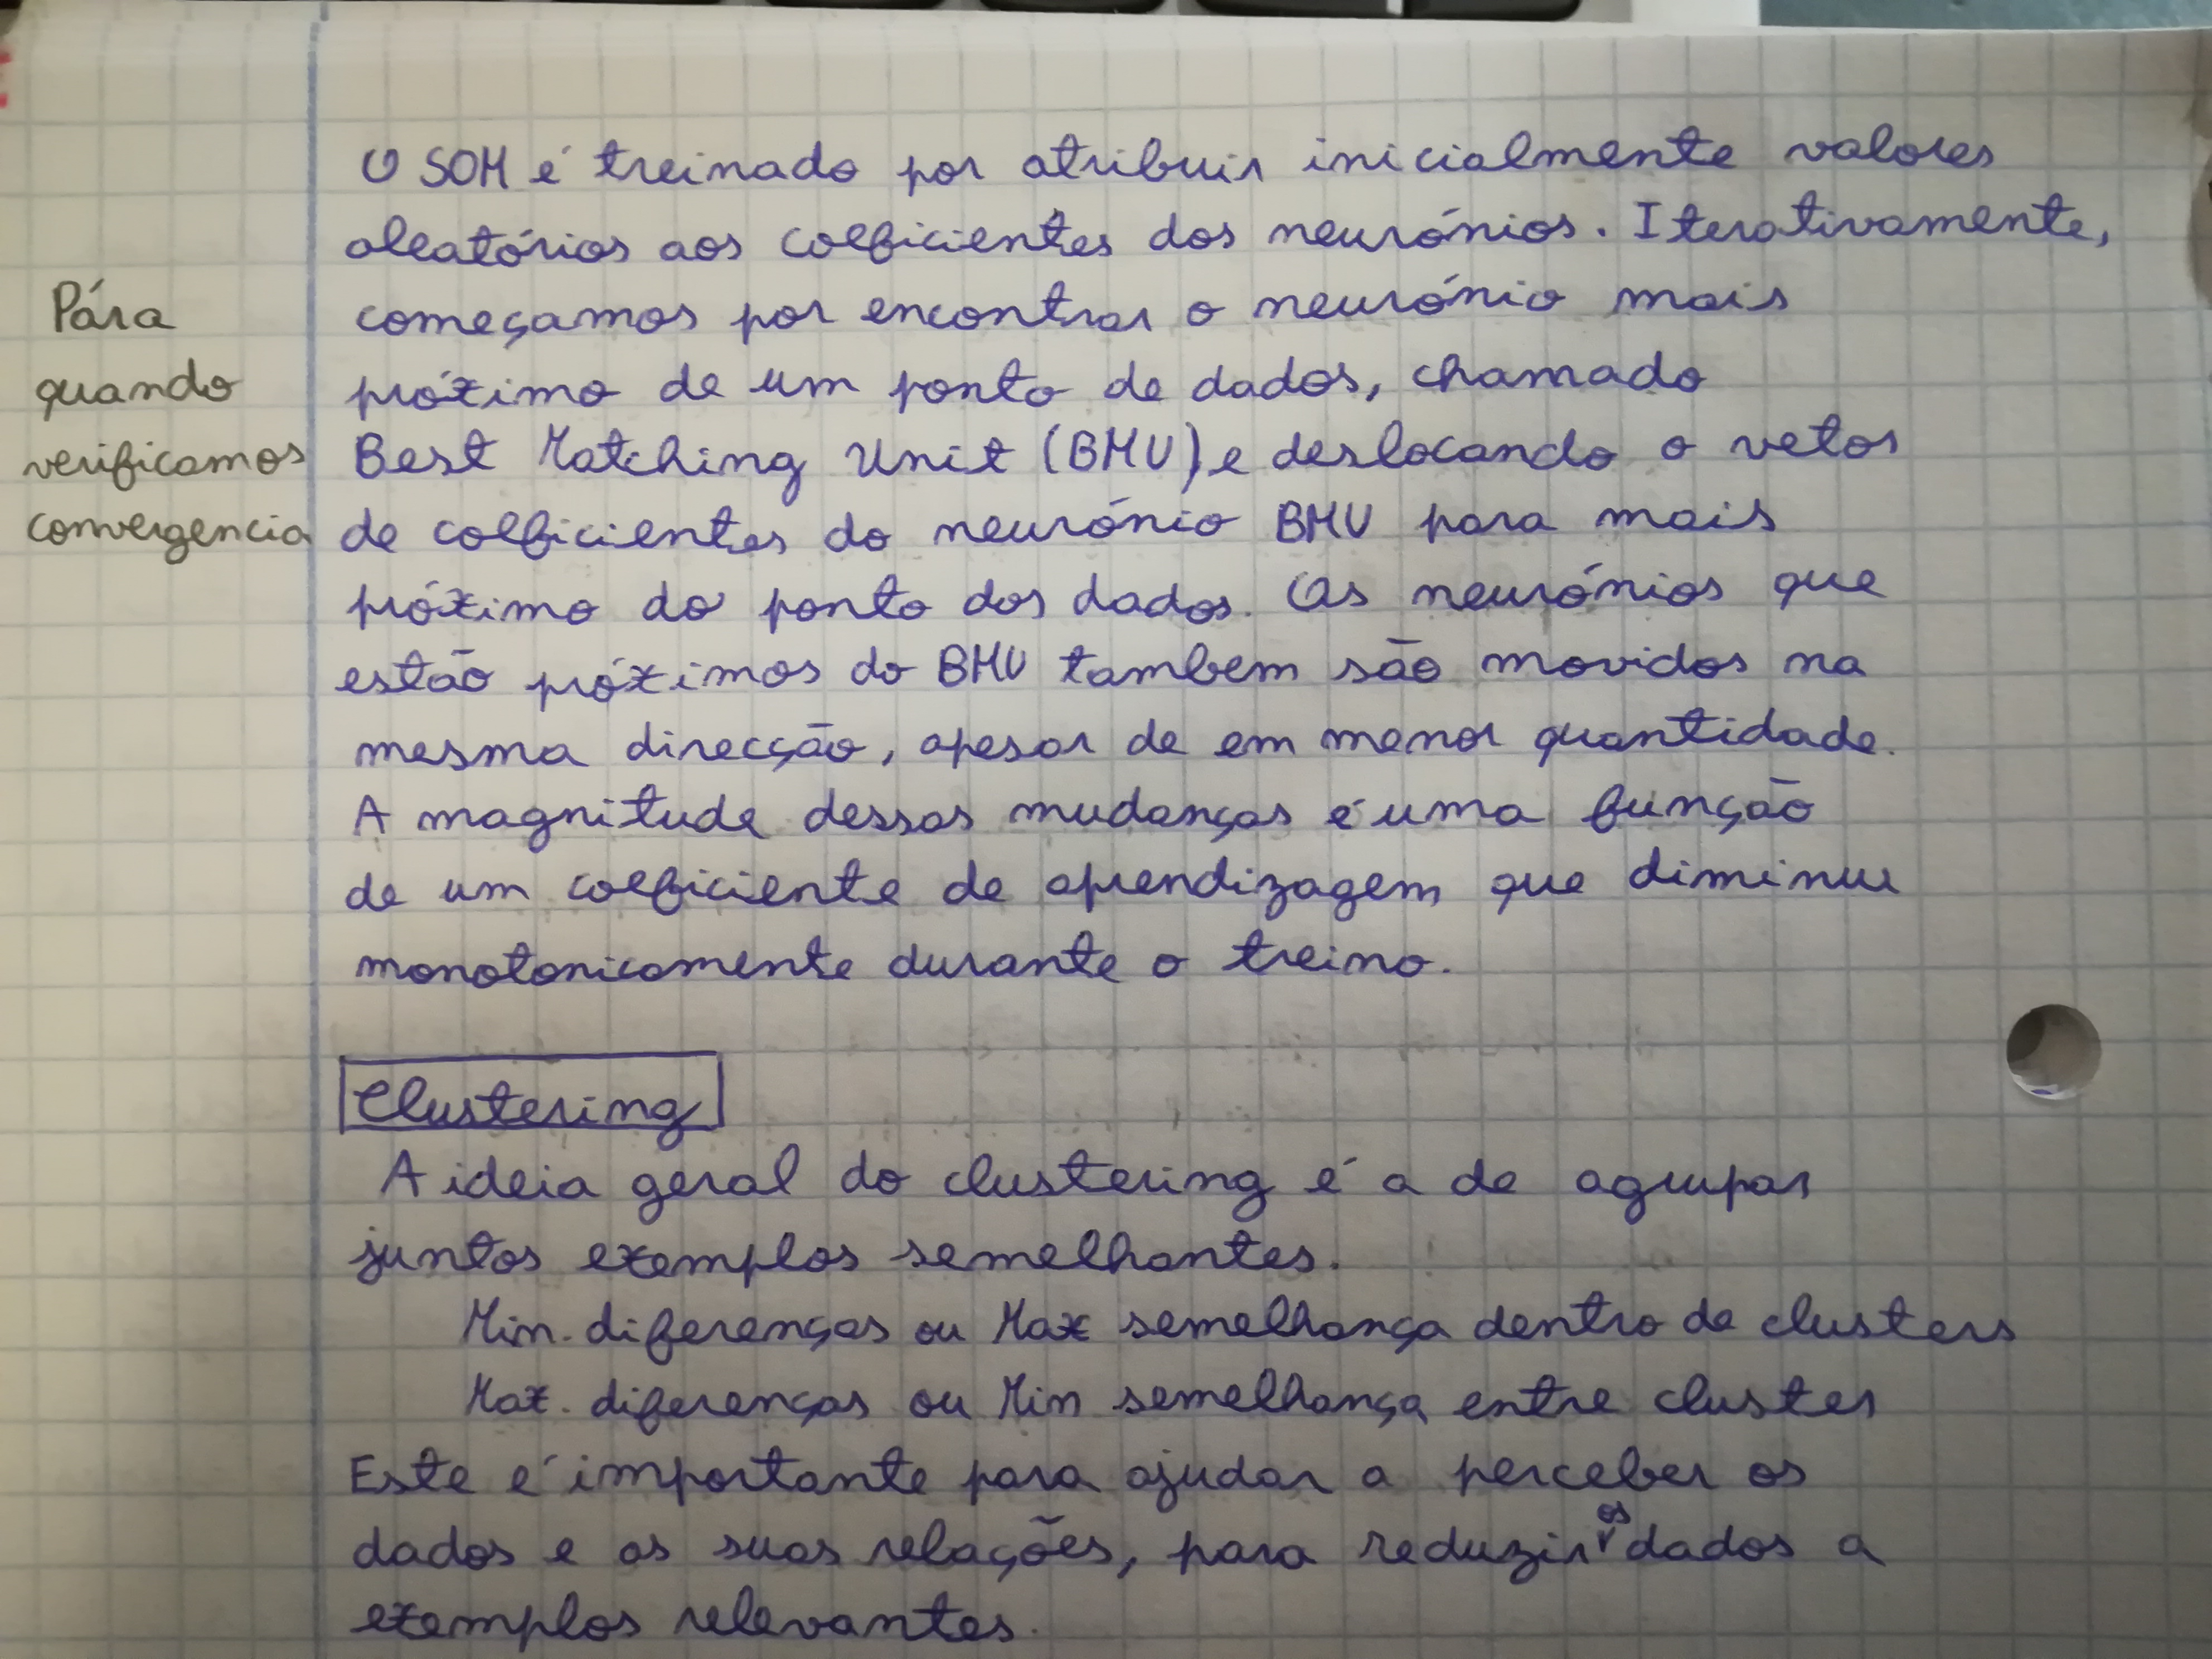 O SOM é treinado por atribuir inicialmente valores
aleatórios aos coeficientes dos neurónios. Iterativamente,
começamos por encontrar o neurónio mais
próximo de um ponto de dados, chamado
Best Matching Unit (BMU) e deslocando o vetor
de coeficientes do neurónio BMU para mais
próximo do ponto dos dados. Os neurónios que
estão próximos do BMU tambem são movidos na
mesma direcção, apesar de em menor quantidade.
A magnitude dessas mudanças é uma função
de um coeficiente de aprendizagem que diminui
monotonicamente durante o treino.
Pára
quando
verificamos
convergencia
Clustering
A ideia geral do clustering é a de agrupar
juntos exemplos semelhantes.
Min. diferenças ou Max semelhança dentro de clusters
Max. diferenças ou Min semelhança entre cluster
Este é importante para ajudar a perceber os
dados e as suas relações, para reduzir os dados a
exemplos relevantes.